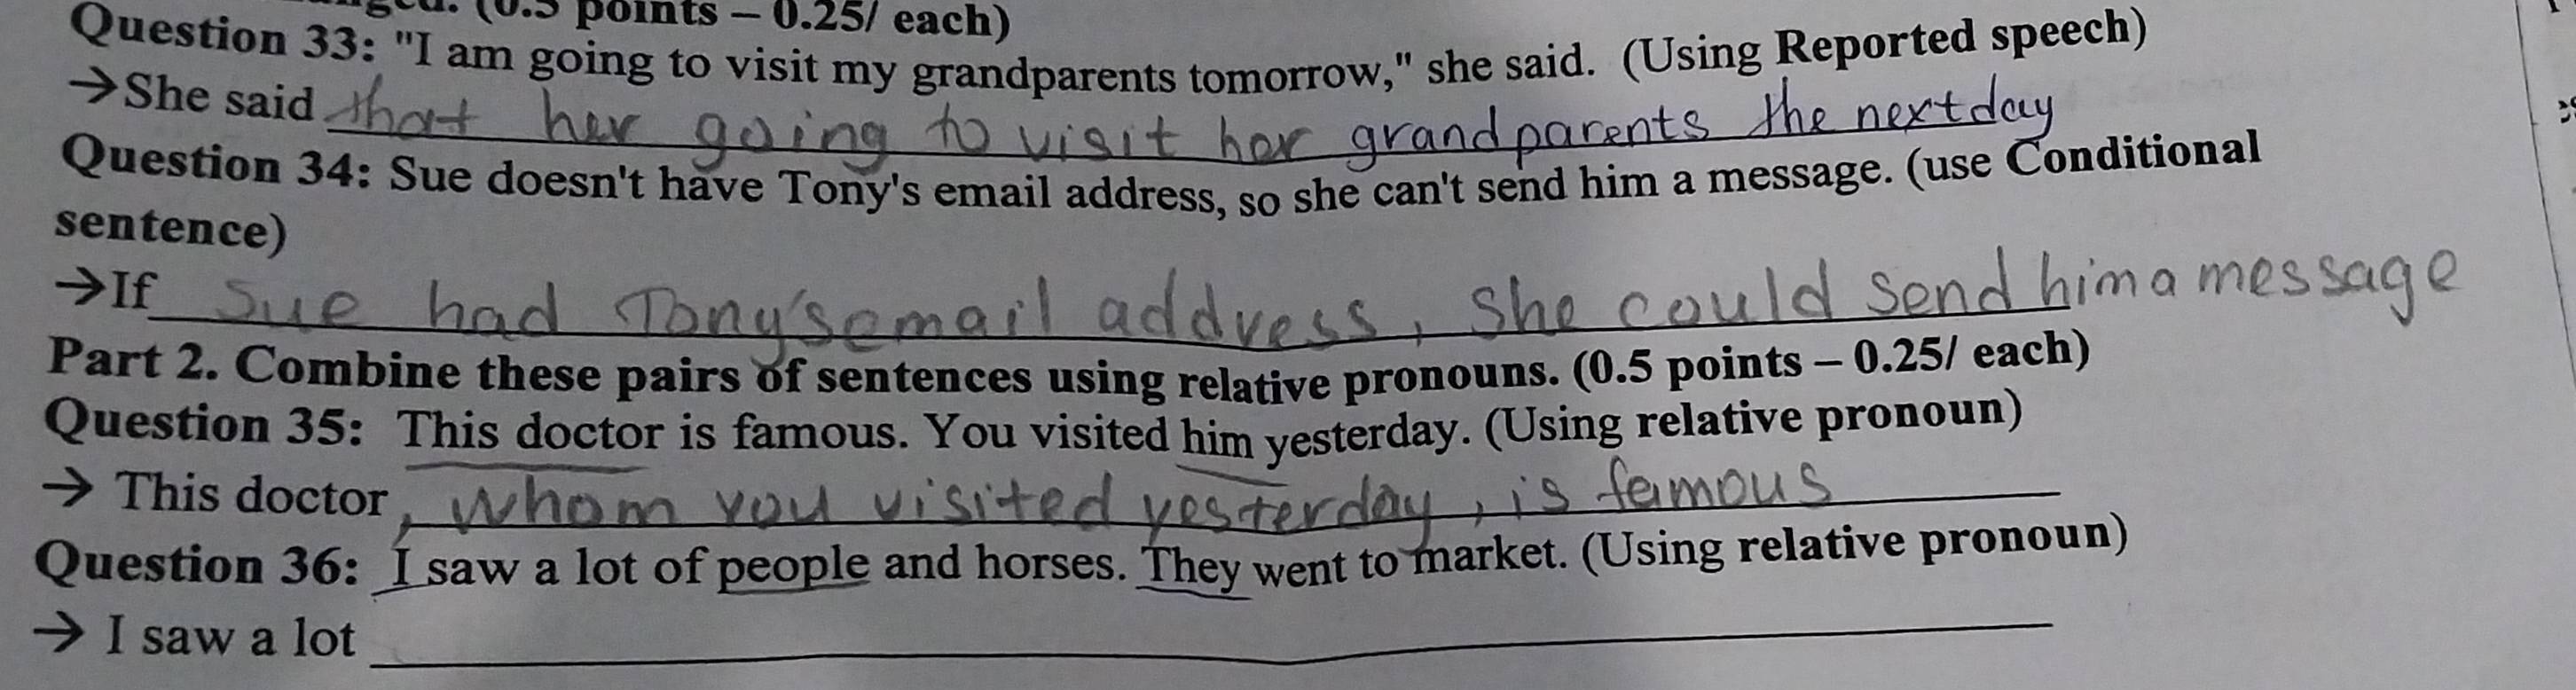 (0.5 points – 0.25/ each)
Question 33: "I am going to visit my grandparents tomorrow," she said. (Using Reported speech)
→She said that her going to visit her grandparents the next day
Question 34: Sue doesn't have Tony's email address, so she can't send him a message. (use Conditional
sentence)
→If Sue had Tony's email address, she could send him a message
Part 2. Combine these pairs of sentences using relative pronouns. (0.5 points – 0.25/ each)
Question 35: This doctor is famous. You visited him yesterday. (Using relative pronoun)
→ This doctor, whom you visited yesterday, is famous
Question 36: I saw a lot of people and horses. They went to market. (Using relative pronoun)
→ I saw a lot